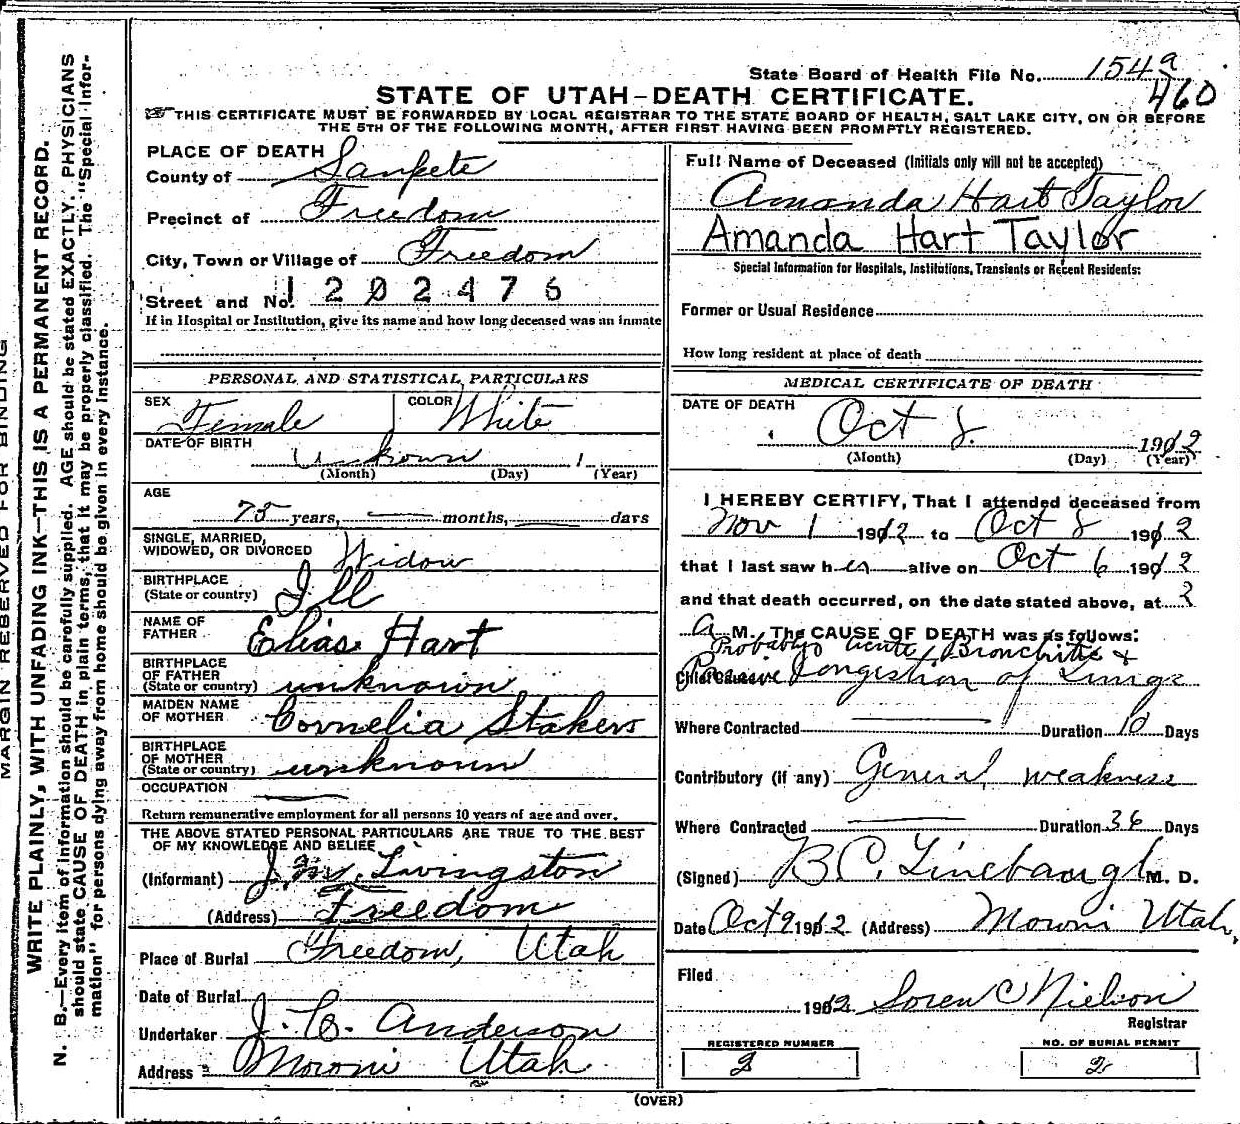 State Board of Health File No. 154 a
460
STATE OF UTAH–DEATH CERTIFICATE.
☞ THIS CERTIFICATE MUST BE FORWARDED BY LOCAL REGISTRAR TO THE STATE BOARD OF HEALTH, SALT LAKE CITY, ON OR BEFORE
THE 5TH OF THE FOLLOWING MONTH, AFTER FIRST HAVING BEEN PROMPTLY REGISTERED.
MARGIN RESERVED FOR BINDING
WRITE PLAINLY, WITH UNFADING INK—THIS IS A PERMANENT RECORD.
N. B.—Every item of information should be carefully supplied. AGE should be stated EXACTLY. PHYSICIANS
should state CAUSE OF DEATH in plain terms, that it may be properly classified. The "Special Infor-
mation" for persons dying away from home should be given in every instance.
PLACE OF DEATH
County of Sanpete
Precinct of Freedom
City, Town or Village of Freedom
Street and No. 1202476
If in Hospital or Institution, give its name and how long deceased was an inmate
PERSONAL AND STATISTICAL PARTICULARS
SEX Female COLOR White
DATE OF BIRTH
unknown 1
(Month) (Day) (Year)
AGE
75 years, months, days
SINGLE, MARRIED,
WIDOWED, OR DIVORCED Widow
BIRTHPLACE
(State or country) Ill
NAME OF
FATHER Elias Hart
BIRTHPLACE
OF FATHER
(State or country) unknown
MAIDEN NAME
OF MOTHER Cornelia Stakers
BIRTHPLACE
OF MOTHER
(State or country) unknown
OCCUPATION
Return remunerative employment for all persons 10 years of age and over.
THE ABOVE STATED PERSONAL PARTICULARS ARE TRUE TO THE BEST
OF MY KNOWLEDGE AND BELIEF
(Informant) J. M. Livingston
(Address) Freedom
Place of Burial Freedom, Utah
Date of Burial
Undertaker J. C. Anderson
Address Moroni Utah
Full Name of Deceased (Initials only will not be accepted)
Amanda Hart Taylor
Amanda Hart Taylor
Special Information for Hospitals, Institutions, Transients or Recent Residents:
Former or Usual Residence
How long resident at place of death
MEDICAL CERTIFICATE OF DEATH
DATE OF DEATH
Oct 8. 1912
(Month) (Day) (Year)
I HEREBY CERTIFY, That I attended deceased from
Nov 1 1912 to Oct 8 1912
that I last saw her alive on Oct 6 1912
and that death occurred, on the date stated above, at 2
A M. The CAUSE OF DEATH was as follows:
Probably acute Bronchitis &
Chief Cause Passive Congestion of Lungs
Where Contracted Duration 10 Days
Contributory (if any) General weakness
Where Contracted Duration 36 Days
(Signed) B C. Linebaugh M. D.
Date Oct 9 1912 (Address) Moroni Utah,
Filed
1912 Soren C Nielson
Registrar
REGISTERED NUMBER
2
NO. OF BURIAL PERMIT
2
(OVER)